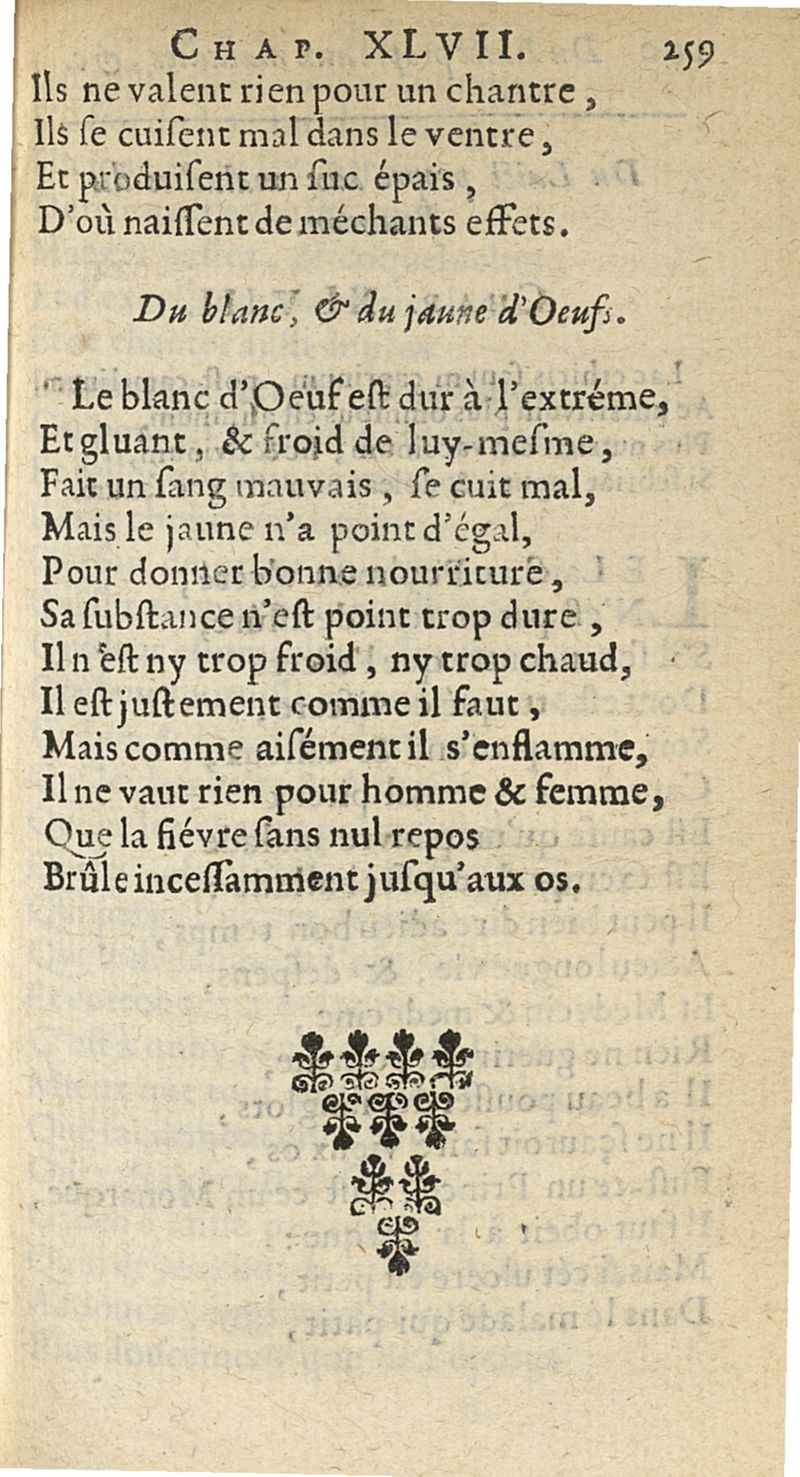 CHAP. XLVII. 259
Ils ne valent rien pour un chantre,
Ils ſe cuiſent mal dans le ventre,
Et produiſent un ſuc épais,
D'où naiſſent de méchants effets.
Du blanc, & du jaune d'Oeufs.
Le blanc d'Oeuf eſt dur à l'extréme,
Et gluant, & froid de luy-meſme,
Fait un ſang mauvais, ſe cuit mal,
Mais le jaune n'a point d'égal,
Pour donner bonne nourriture,
Sa ſubſtance n'eſt point trop dure,
Il n'eſt ny trop froid, ny trop chaud,
Il eſt juſtement comme il faut,
Mais comme aiſément il s'enflamme,
Il ne vaut rien pour homme & femme,
Que la fiévre ſans nul repos
Brûle inceſſamment juſqu'aux os.